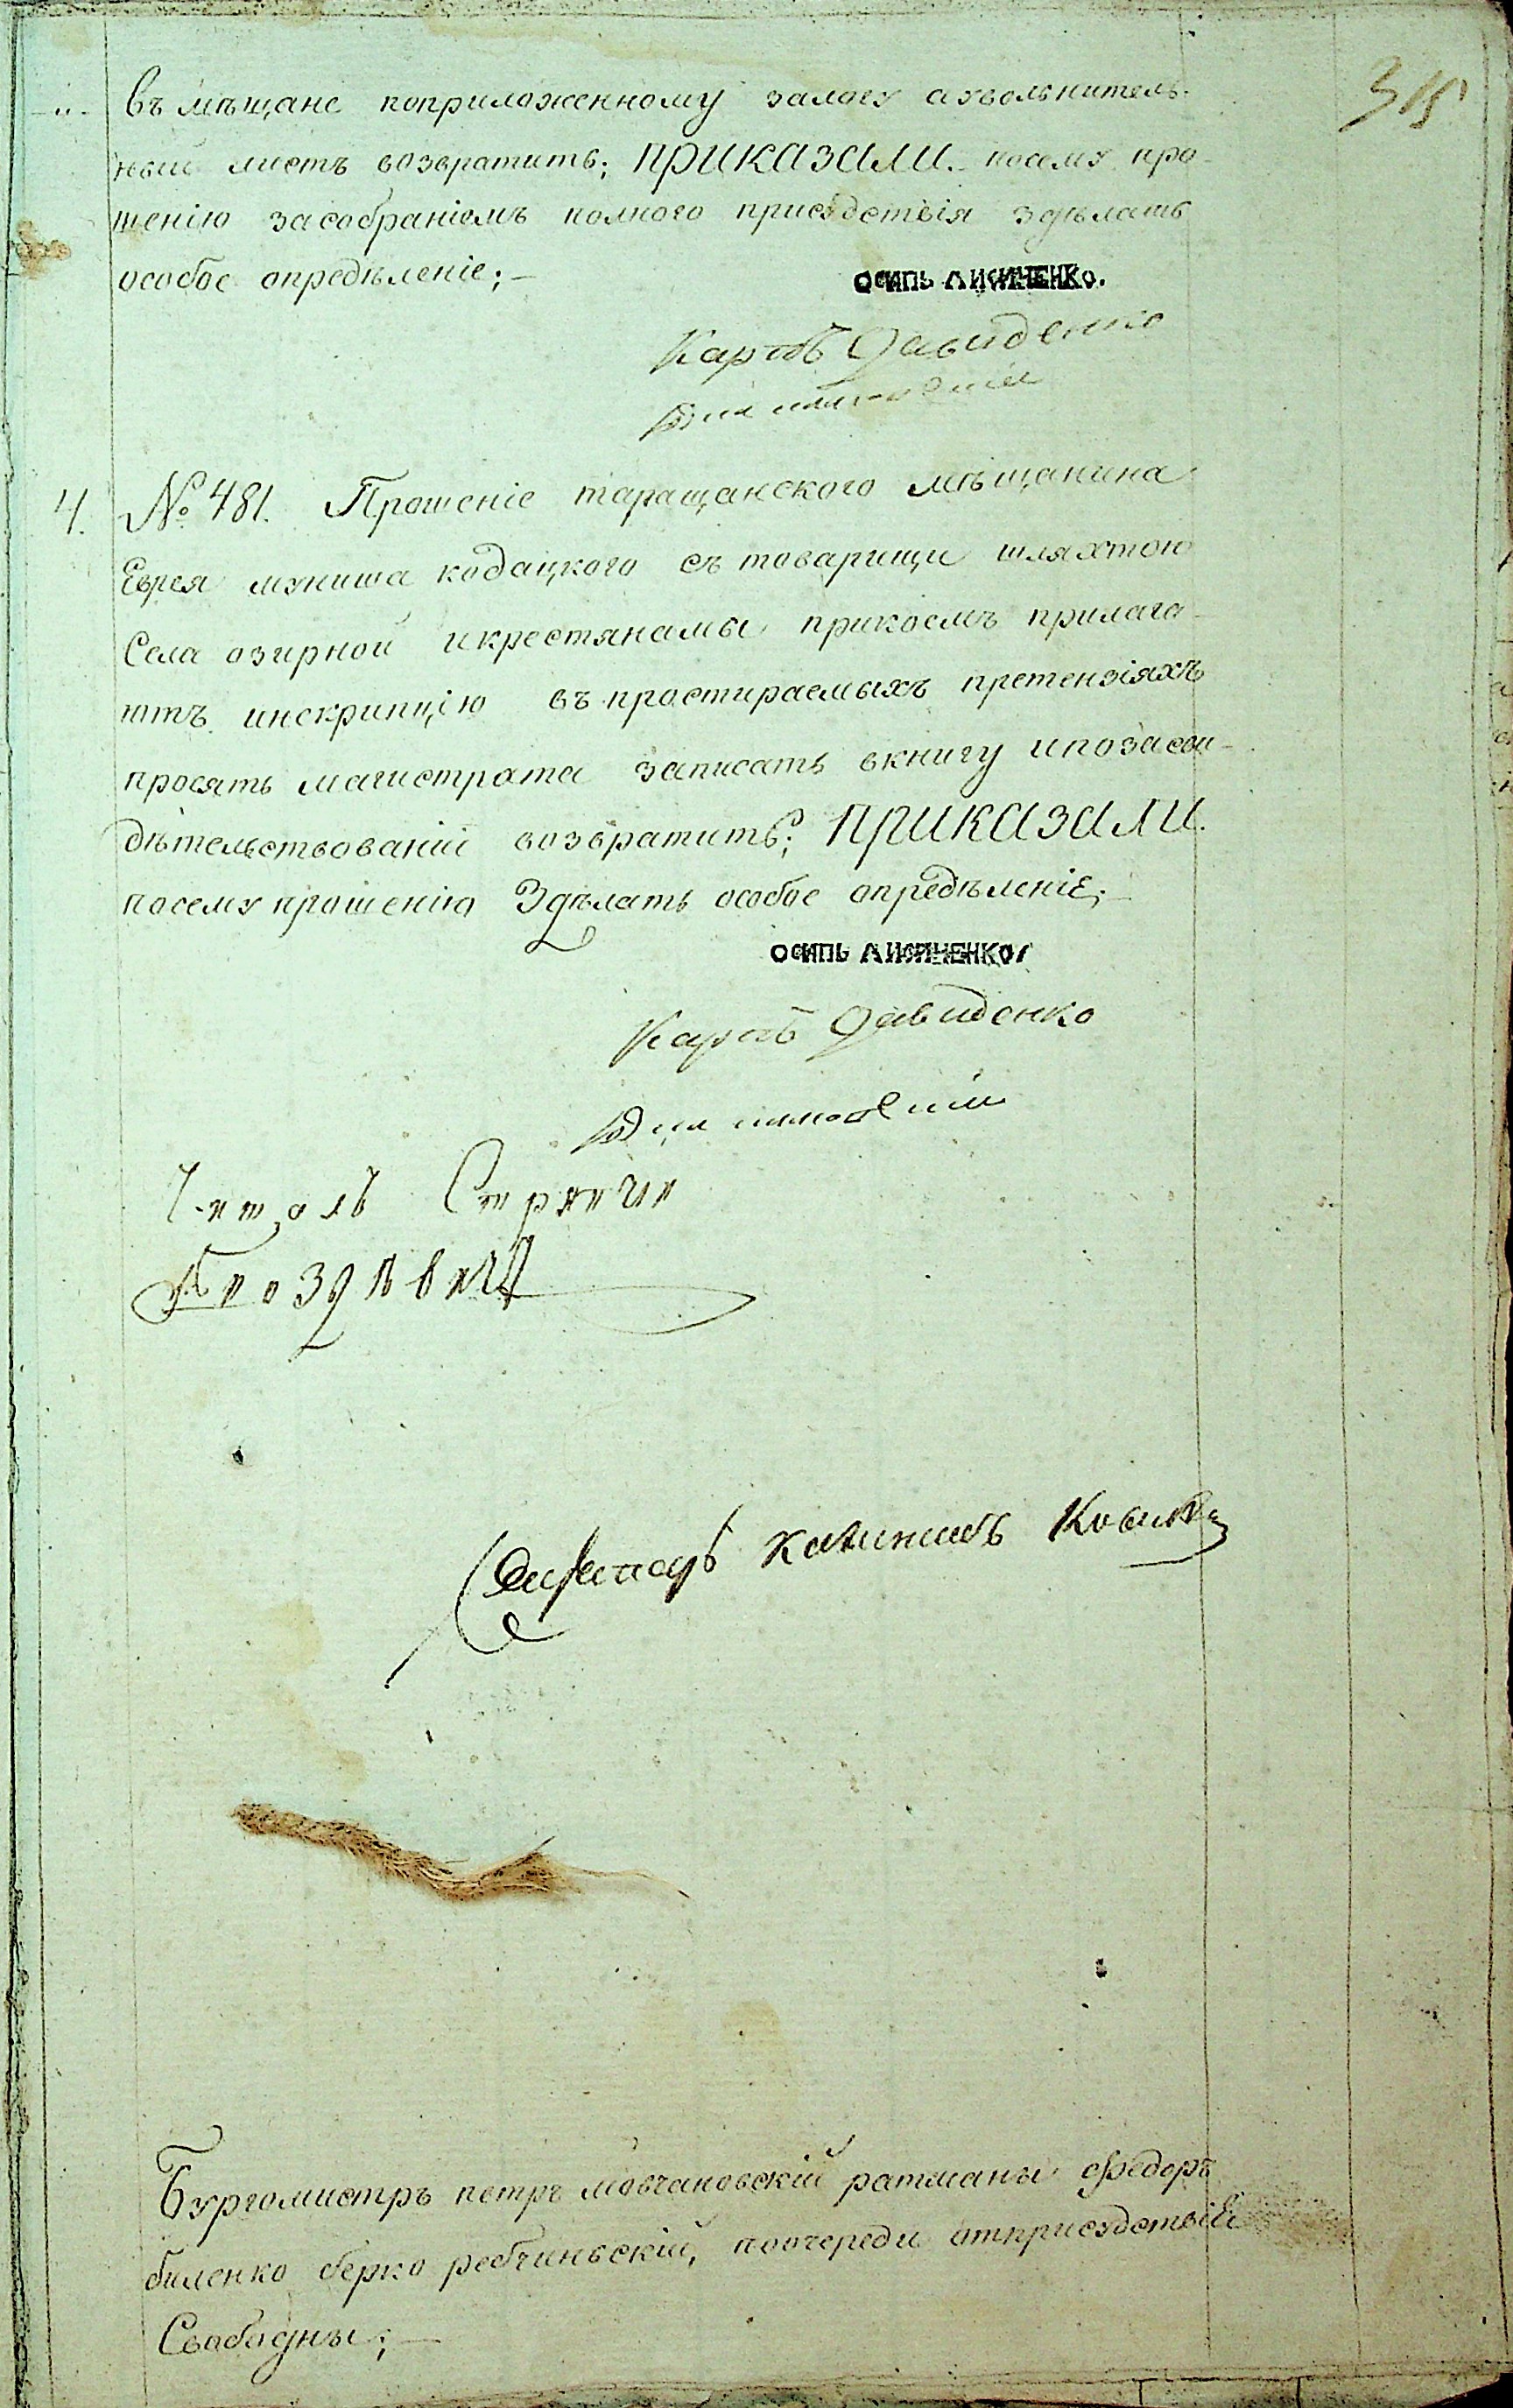 315
въ мѣщане поприложенному залогу аувольнитель-
ный листъ возвратить; приказали. посему про-
шенію засобраніемъ полного присудствія здѣлать
особое опредѣленіе; —
ОСИПЬ ЛИСИЧЕНКО.
Карпъ Давиденко
4. № 481. Прошеніе таращанского мѣщанина
Еврея муниша кодацкого съ товарищи шляхтою
Села озирной икрестянамы прикоемъ прилага-
ютъ инскрипцію въ простираемыхъ претензіяхъ
просять магистрата записать вкнигу ипозасви-
дѣтельствованіи возвратить; приказали.
посему прошенію Здѣлать особое опредѣленіе; —
ОСИПЬ ЛИСИЧЕНКО
Карпъ Давиденко
Читалъ Стряпчи
Секретарь Ковал
Бургомистръ петръ мовчановскій ратманы федоръ
биленко берко ребчиньскій, поочереди отприсудствія
Свабодны; —